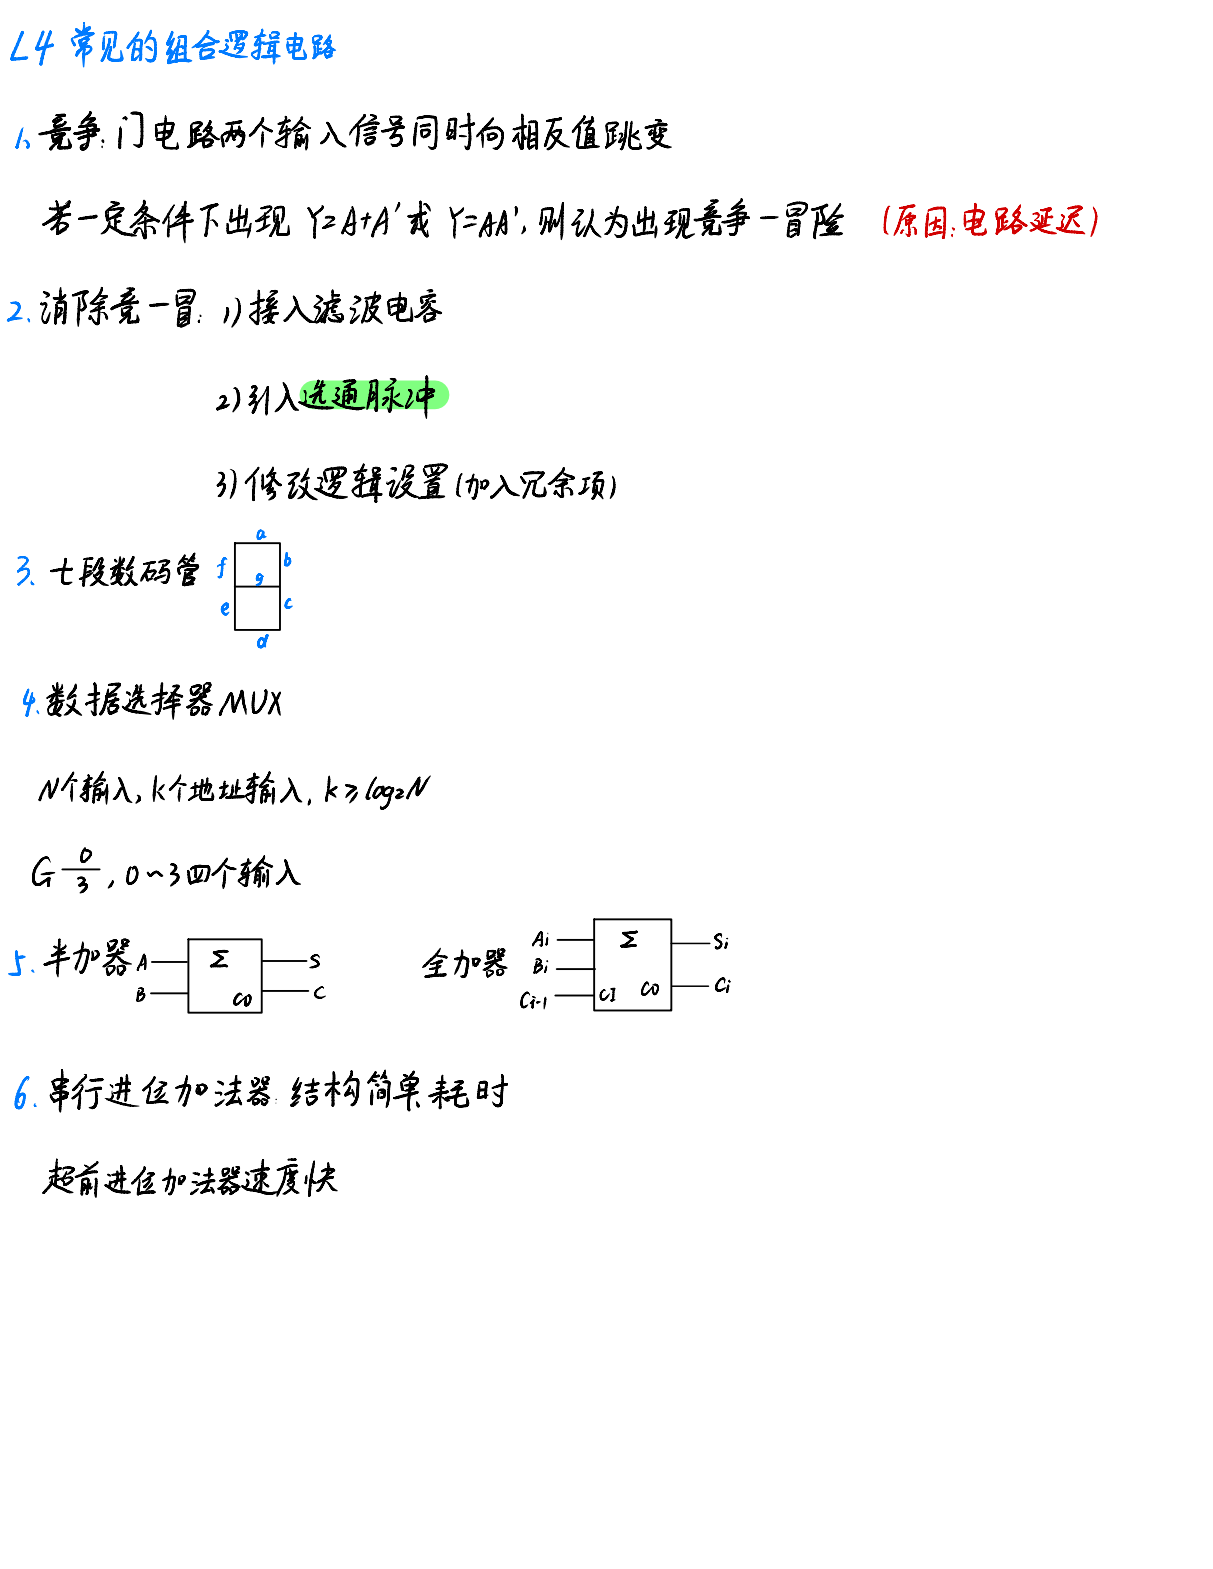 L4 常见的组合逻辑电路
1、竞争:门电路两个输入信号同时向相反值跳变
若一定条件下出现 Y=A+A'或 Y=AA',则认为出现竞争-冒险 (原因:电路延迟)
2.消除竞-冒:1)接入滤波电容
2)引入选通脉冲
3)修改逻辑设置(加入冗余项)
a
3. 七段数码管 f b
g
e c
d
4.数据选择器MUX
N个输入,k个地址输入,k≥log₂N
G 0/3,0~3四个输入
5. 半加器 A B Σ CO S C 全加器 Ai Bi Ci-1 Σ CI CO Si Ci
6.串行进位加法器:结构简单,耗时
超前进位加法器速度快